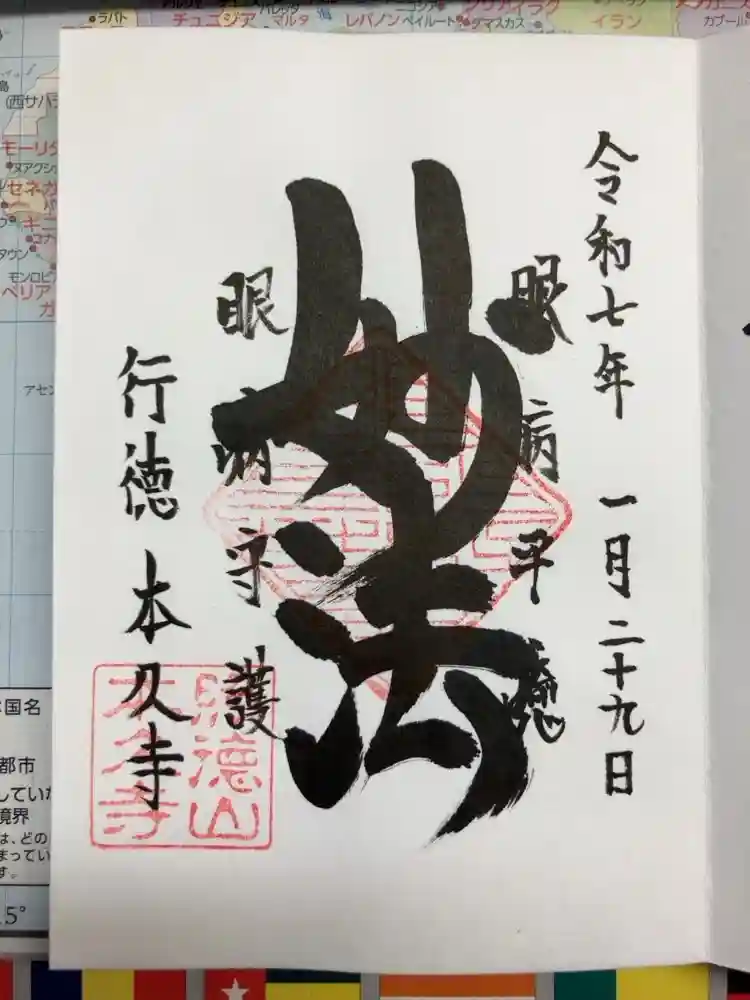 令和七年 一月二十九日
眼病平癒
妙法
眼病守護
行徳 本久寺
照徳山
本久寺
ラバト
チュニジア
マルタ
レバノン
ベイルート
ダマスカス
イラク
イラン
カブール
モーリタ
セネガ
ギニ
モンロビ
ベリア
アセン
国名
都市
境界
は、どの
まってい
す。
15°